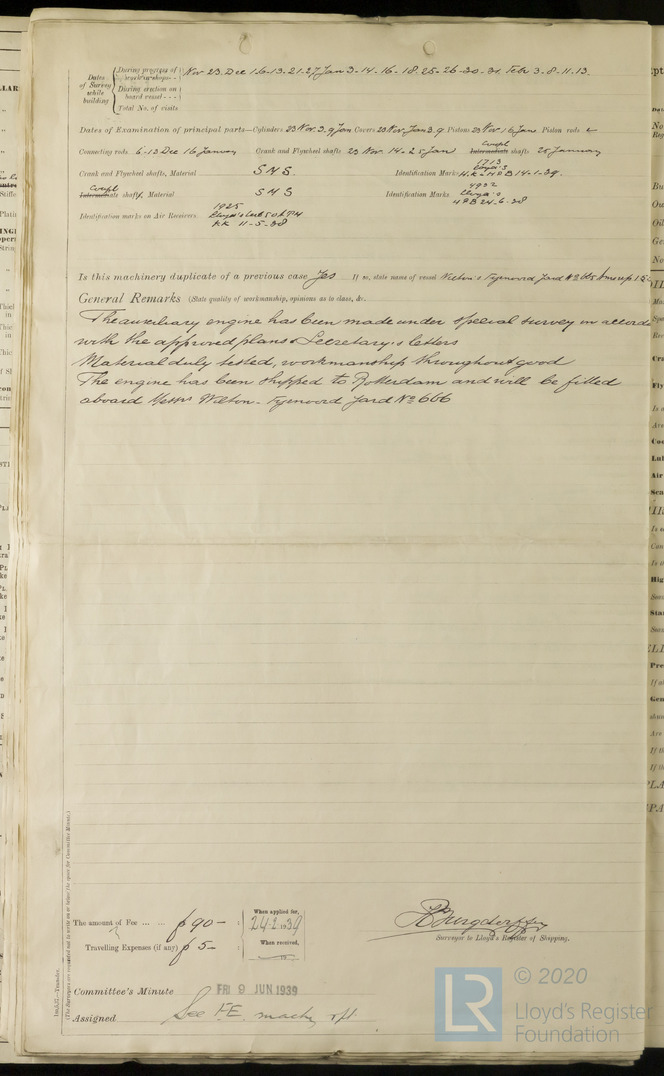 Dates of Survey while building
During progress of work in shops - - Nov 23. Dec 1.6.13.21.27 Jan 3.14.16.18.25.26.30.31. Feb 3.8.11.13.
During erection on board vessel - - -
Total No. of visits
Dates of Examination of principal parts—Cylinders 23 Nov. 3.9 Jan Covers 23 Nov. Jan 3.9 Pistons 23 Nov. 16 Jan Piston rods
Connecting rods 6-13 Dec 16 January Crank and Flywheel shafts 23 Nov. 14-25 Jan Coupl Intermediate shafts 25 January
Crank and Flywheel shafts, Material S M S. Identification Marks 1713 Lloyd's 14-1-39.
Coupl Intermediate shafts, Material S M S Identification Marks 4932 Lloyd's 24.6.38
Identification marks on Air Receivers 1925 Lloyd's KK 11-5-38
Is this machinery duplicate of a previous case Yes If so, state name of vessel Wilton's Fyenoord Yard No 665
General Remarks (State quality of workmanship, opinions as to class, &c.
The auxiliary engine has been made under special survey in accorda
with the approved plans & Secretary's letters
Material duly tested, workmanship throughout good
The engine has been shipped to Rotterdam and will be fitted
aboard Messrs Wilton-Fyenoord Yard No 666
The amount of Fee ... ... £ 90 - : When applied for, 24.2.1939
Travelling Expenses (if any) £ 5 - : When received,
Surveyor to Lloyd's Register of Shipping.
Committee's Minute FRI 9 JUN 1939
Assigned See F.E. machy rpt.
(The Surveyors are requested not to write on or below the space for Committee's Minute.)
LR
© 2020
Lloyd's Register
Foundation